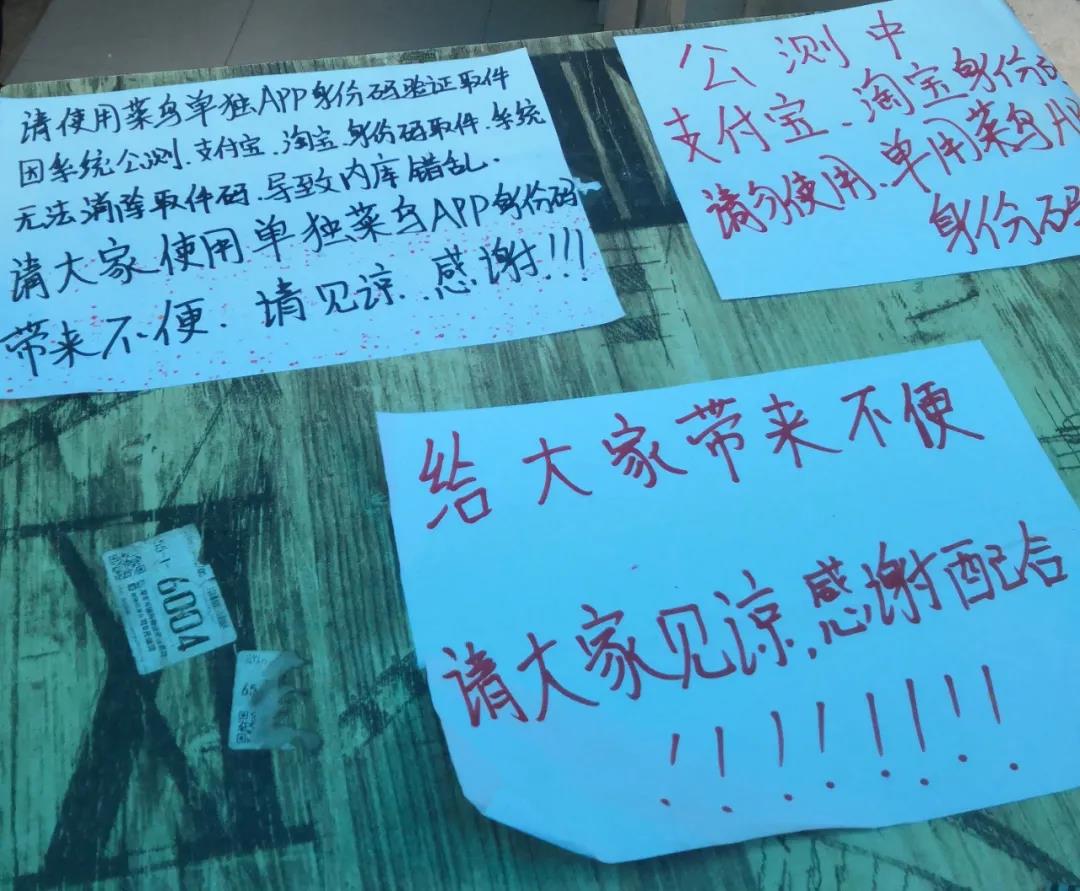 请使用菜鸟单独APP身份码验证取件
因系统公测.支付宝.淘宝.身份码取件.系统
无法消除取件码.导致内库错乱.
请大家使用单独菜鸟APP身份码
带来不便.请见谅..感谢!!!
公测中
支付宝.淘宝身份
请勿使用.单用菜鸟A
身份码
给大家带来不便
请大家见谅.感谢配合
!!!!!!!
6004